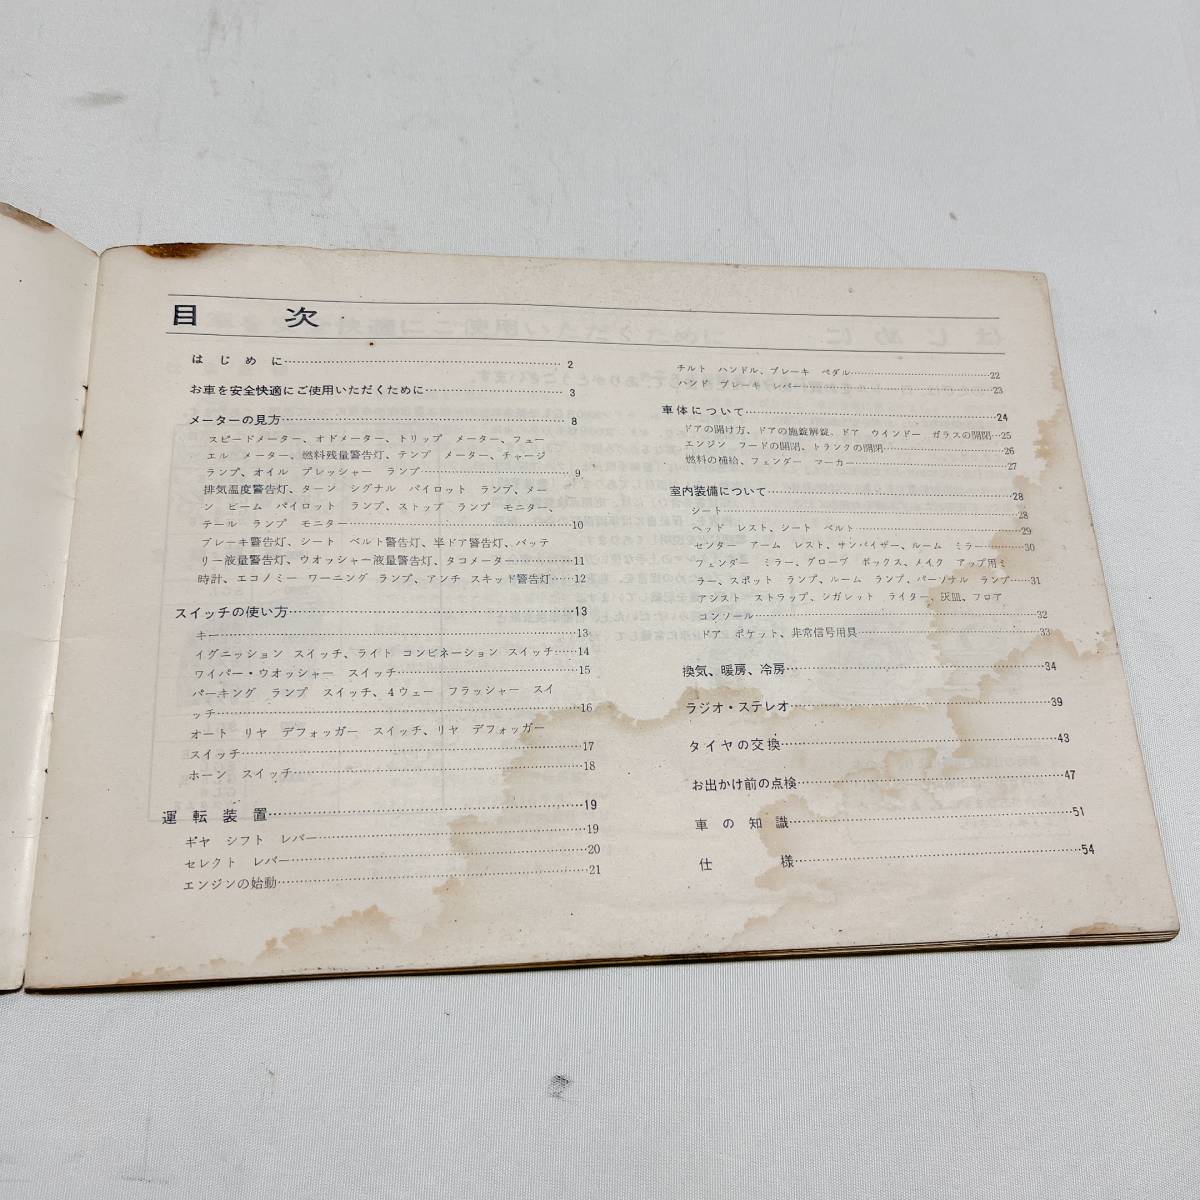 目　次
はじめに…………2
お車を安全快適にご使用いただくために…………3
メーターの見方…………8
スピードメーター、オドメーター、トリップ メーター、フュー
エル メーター、燃料残量警告灯、テンプ メーター、チャージ
ランプ、オイル プレッシャー ランプ…………9
排気温度警告灯、ターン シグナル パイロット ランプ、メー
ン ビーム パイロット ランプ、ストップ ランプ モニター、
テール ランプ モニター…………10
ブレーキ警告灯、シート ベルト警告灯、半ドア警告灯、バッテ
リー液量警告灯、ウオッシャー液量警告灯、タコメーター…………11
時計、エコノミー ワーニング ランプ、アンチ スキッド警告灯……12
スイッチの使い方…………13
キー…………13
イグニッション スイッチ、ライト コンビネーション スイッチ……14
ワイパー・ウオッシャー スイッチ…………15
パーキング ランプ スイッチ、4ウェー フラッシャー スイ
ッチ…………16
オート リヤ デフォッガー スイッチ、リヤ デフォッガー
スイッチ…………17
ホーン スイッチ…………18
運転装置…………19
ギヤ シフト レバー…………19
セレクト レバー…………20
エンジンの始動…………21
チルト ハンドル、ブレーキ ペダル…………22
ハンド ブレーキ レバー…………23
車体について…………24
ドアの開け方、ドアの施錠解錠、ドア ウインドー ガラスの開閉…25
エンジン フードの開閉、トランクの開閉…………26
燃料の補給、フェンダー マーカー…………27
室内装備について…………28
シート…………28
ヘッド レスト、シート ベルト…………29
センター アーム レスト、サンバイザー、ルーム ミラー…………30
フェンダー ミラー、グローブ ボックス、メイク アップ用ミ
ラー、スポット ランプ、ルーム ランプ、パーソナル ランプ……31
アシスト ストラップ、シガレット ライター、灰皿、フロア
コンソール…………32
ドア ポケット、非常信号用具…………33
換気、暖房、冷房…………34
ラジオ・ステレオ…………39
タイヤの交換…………43
お出かけ前の点検…………47
車の知識…………51
仕様…………54